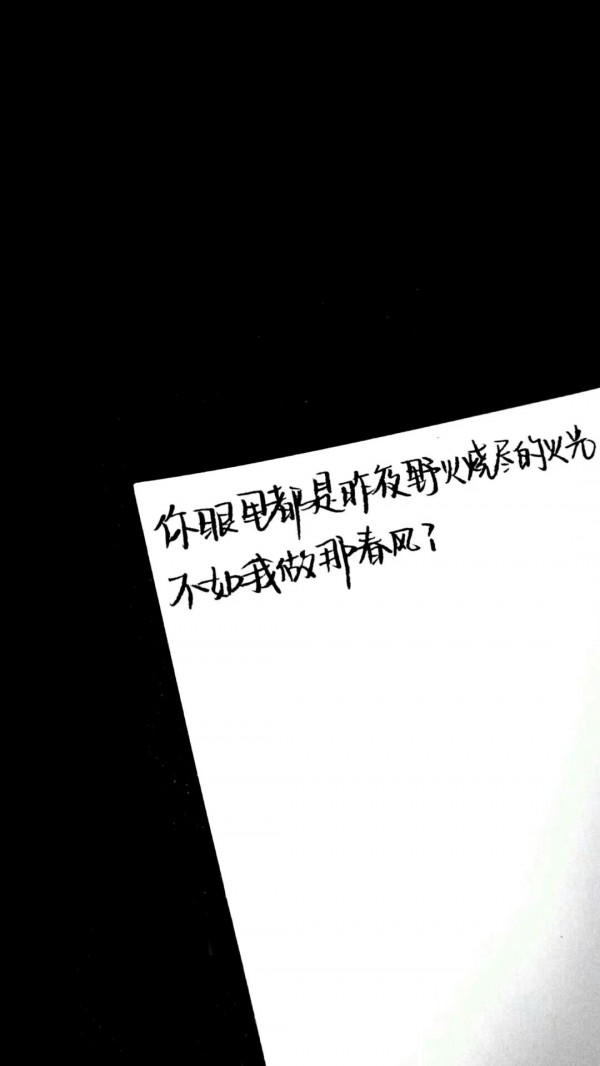 你眼里都是昨夜野火烧尽的火光
不如我做那春风？